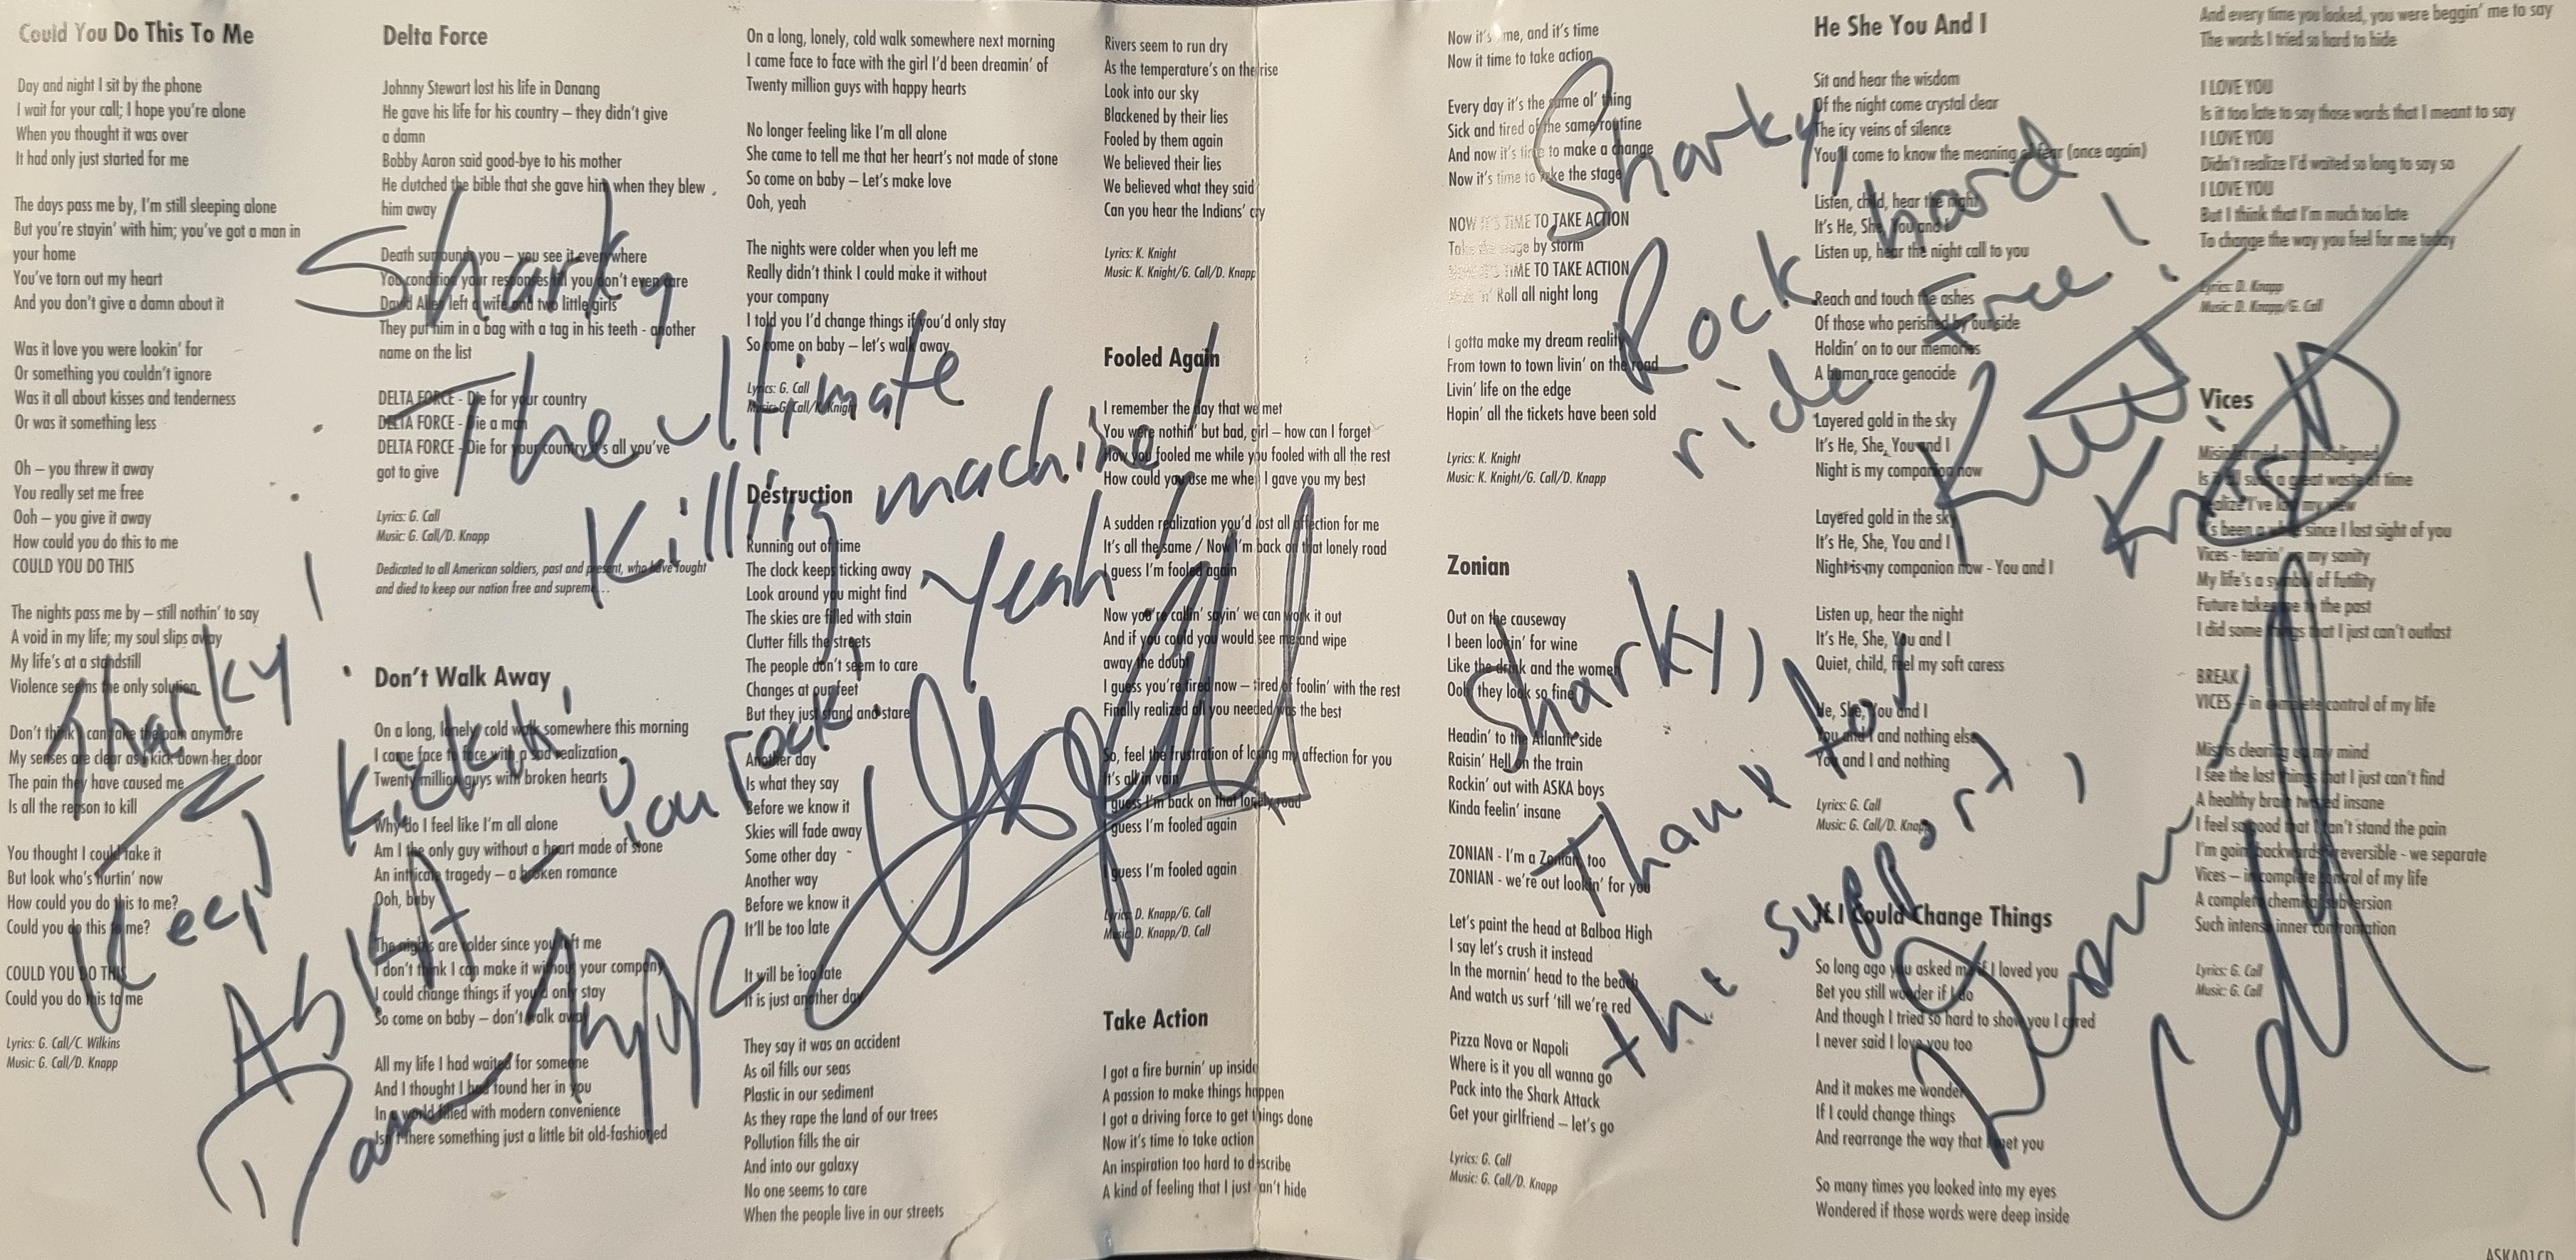 Could You Do This To Me
Day and night I sit by the phone
I wait for your call; I hope you're alone
When you thought it was over
It had only just started for me
The days pass me by, I'm still sleeping alone
But you're stayin' with him; you've got a man in
your home
You've torn out my heart
And you don't give a damn about it
Was it love you were lookin' for
Or something you couldn't ignore
Was it all about kisses and tenderness
Or was it something less
Oh – you threw it away
You really set me free
Ooh – you give it away
How could you do this to me
COULD YOU DO THIS
The nights pass me by – still nothin' to say
A void in my life; my soul slips away
My life's at a standstill
Violence seems the only solution
Don't think I can take the pain anymore
My senses are clear as I kick down her door
The pain they have caused me
Is all the reason to kill
You thought I could take it
But look who's hurtin' now
How could you do this to me?
Could you do this to me?
COULD YOU DO THIS
Could you do this to me
Lyrics: G. Call/C. Wilkins
Music: G. Call/D. Knapp
Delta Force
Johnny Stewart lost his life in Danang
He gave his life for his country – they didn't give
a damn
Bobby Aaron said good-bye to his mother
He clutched the bible that she gave him when they blew
him away
Death surrounds you – you see it everywhere
You condition your responses till you don't even care
David Allen left a wife and two little girls
They put him in a bag with a tag in his teeth - another
name on the list
DELTA FORCE - Die for your country
DELTA FORCE - Die a man
DELTA FORCE - Die for your country it's all you've
got to give
Lyrics: G. Call
Music: G. Call/D. Knapp
Dedicated to all American soldiers, past and present, who have fought
and died to keep our nation free and supreme...
Don't Walk Away
On a long, lonely, cold walk somewhere this morning
I came face to face with a sad realization
Twenty million guys with broken hearts
Why do I feel like I'm all alone
Am I the only guy without a heart made of stone
An intricate tragedy – a broken romance
Ooh, baby
The nights are colder since you left me
I don't think I can make it without your company
I could change things if you'd only stay
So come on baby – don't walk away
All my life I had waited for someone
And I thought I had found her in you
In a world filled with modern convenience
Isn't there something just a little bit old-fashioned
On a long, lonely, cold walk somewhere next morning
I came face to face with the girl I'd been dreamin' of
Twenty million guys with happy hearts
No longer feeling like I'm all alone
She came to tell me that her heart's not made of stone
So come on baby – Let's make love
Ooh, yeah
The nights were colder when you left me
Really didn't think I could make it without
your company
I told you I'd change things if you'd only stay
So come on baby – let's walk away
Lyrics: G. Call
Music: G. Call/K. Knight
Destruction
Running out of time
The clock keeps ticking away
Look around you might find
The skies are filled with stain
Clutter fills the streets
The people don't seem to care
Changes at our feet
But they just stand and stare
Another day
Is what they say
Before we know it
Skies will fade away
Some other day
Another way
Before we know it
It'll be too late
It will be too late
It is just another day
They say it was an accident
As oil fills our seas
Plastic in our sediment
As they rape the land of our trees
Pollution fills the air
And into our galaxy
No one seems to care
When the people live in our streets
Rivers seem to run dry
As the temperature's on the rise
Look into our sky
Blackened by their lies
Fooled by them again
We believed their lies
We believed what they said
Can you hear the Indians' cry
Lyrics: K. Knight
Music: K. Knight/G. Call/D. Knapp
Fooled Again
I remember the day that we met
You were nothin' but bad, girl – how can I forget
How you fooled me while you fooled with all the rest
How could you use me when I gave you my best
A sudden realization you'd lost all affection for me
It's all the same / Now I'm back on that lonely road
I guess I'm fooled again
Now you're callin' sayin' we can work it out
And if you could you would see me and wipe
away the doubt
I guess you're tired now – tired of foolin' with the rest
Finally realized all you needed was the best
So, feel the frustration of losing my affection for you
It's all in vain
I guess I'm back on that lonely road
I guess I'm fooled again
I guess I'm fooled again
Lyrics: D. Knapp/G. Call
Music: D. Knapp/D. Call
Take Action
I got a fire burnin' up inside
A passion to make things happen
I got a driving force to get things done
Now it's time to take action
An inspiration too hard to describe
A kind of feeling that I just can't hide
Now it's me, and it's time
Now it time to take action
Every day it's the same ol' thing
Sick and tired of the same routine
And now it's time to make a change
Now it's time to take the stage
NOW IT'S TIME TO TAKE ACTION
Take the stage by storm
NOW IT'S TIME TO TAKE ACTION
Rock 'n' Roll all night long
I gotta make my dream reality
From town to town livin' on the road
Livin' life on the edge
Hopin' all the tickets have been sold
Lyrics: K. Knight
Music: K. Knight/G. Call/D. Knapp
Zonian
Out on the causeway
I been lookin' for wine
Like the drink and the women
Ooh, they look so fine
Headin' to the Atlantic side
Raisin' Hell on the train
Rockin' out with ASKA boys
Kinda feelin' insane
ZONIAN - I'm a Zonian, too
ZONIAN - we're out lookin' for you
Let's paint the head at Balboa High
I say let's crush it instead
In the mornin' head to the beach
And watch us surf 'till we're red
Pizza Nova or Napoli
Where is it you all wanna go
Pack into the Shark Attack
Get your girlfriend – let's go
Lyrics: G. Call
Music: G. Call/D. Knapp
He She You And I
Sit and hear the wisdom
Of the night come crystal clear
The icy veins of silence
You'll come to know the meaning of fear (once again)
Listen, child, hear the night
It's He, She, You and I
Listen up, hear the night call to you
Reach and touch the ashes
Of those who perished by our side
Holdin' on to our memories
A human race genocide
Layered gold in the sky
It's He, She, You and I
Night is my companion now
Layered gold in the sky
It's He, She, You and I
Night is my companion now - You and I
Listen up, hear the night
It's He, She, You and I
Quiet, child, feel my soft caress
He, She, You and I
You and I and nothing else
You and I and nothing
Lyrics: G. Call
Music: G. Call/D. Knapp
If I Could Change Things
So long ago you asked me if I loved you
Bet you still wonder if I do
And though I tried so hard to show you I cared
I never said I love you too
And it makes me wonder
If I could change things
And rearrange the way that I met you
So many times you looked into my eyes
Wondered if those words were deep inside
And every time you looked, you were beggin' me to say
The words I tried so hard to hide
I LOVE YOU
Is it too late to say those words that I meant to say
I LOVE YOU
Didn't realize I'd waited so long to say so
I LOVE YOU
But I think that I'm much too late
To change the way you feel for me today
Lyrics: D. Knapp
Music: D. Knapp/G. Call
Vices
Misinformed and misaligned
Is it all such a great waste of time
Realize I've lost my view
It's been a while since I last sight of you
Vices - tearin' up my sanity
My life's a symbol of futility
Future takes me to the past
I did some things that I just can't outlast
BREAK
VICES – in complete control of my life
Mist is clearing up my mind
I see the last things that I just can't find
A healthy brain twisted insane
I feel so good that I can't stand the pain
I'm going backwards irreversible - we separate
Vices – in complete control of my life
A complete chemical subversion
Such intense inner confrontation
Lyrics: G. Call
Music: G. Call
ASKA01CD
Sharky
The ultimate
Killing machine!
Yeah!
Sharky!
Keep Kickin'
ASKA - you rock!
Darren Knapp
Sharky,
Rock hard
ride Free!
Keith Knight
Sharky,
Thanx for
the support,
Damon Call